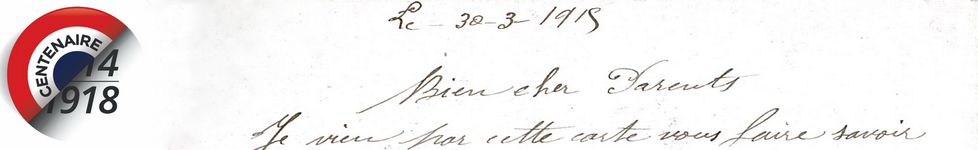 Le 30-3-1915
Bien cher Parents
Je vien par cette carte vous faire savoir
CENTENAIRE
14
1918